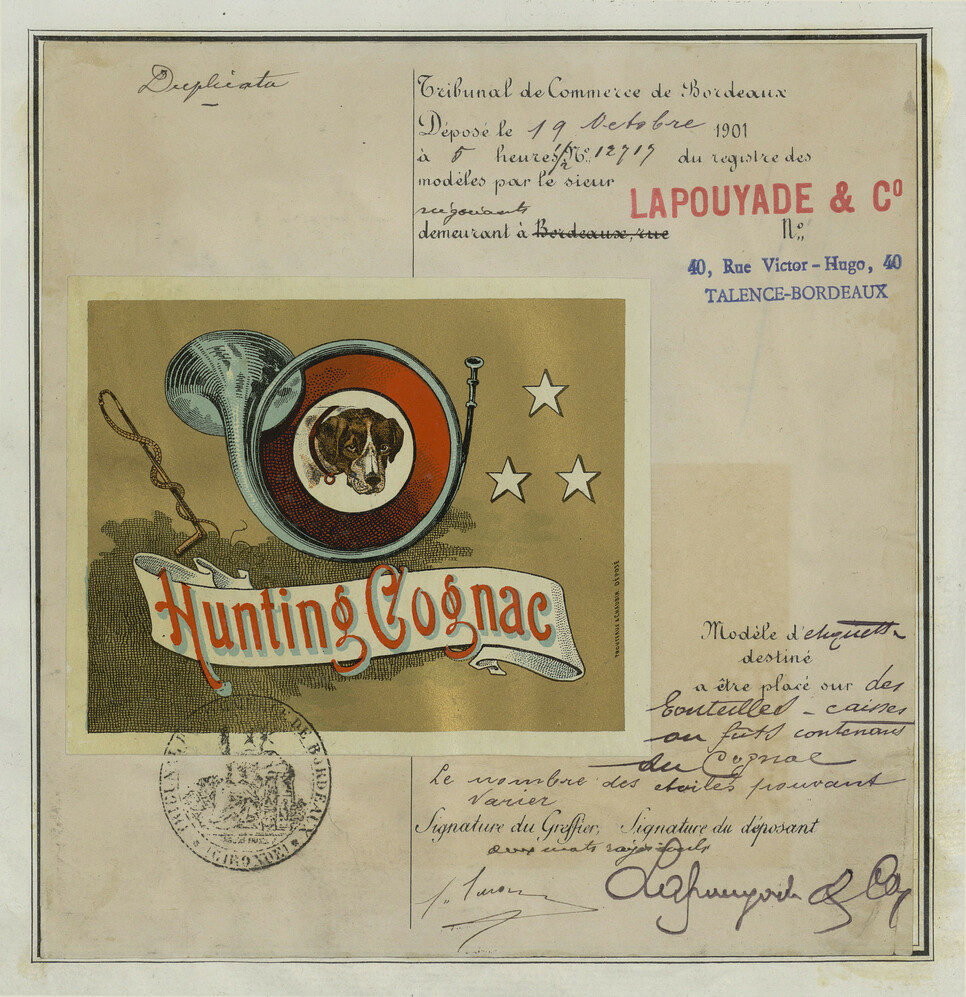 Duplicata
Tribunal de Commerce de Bordeaux
Déposé le 19 Octobre 1901
à 5 heures 1/2 No. 12717 du registre des
modèles par le sieur
LAPOUYADE & Co
négociants
demeurant à Bordeaux, rue No.
40, Rue Victor-Hugo, 40
TALENCE-BORDEAUX
Hunting Cognac
DÉPOSÉ
Modèle d'etiquette
destiné
a être placé sur des
bouteilles - caisses
ou fûts contenant
du Cognac
Le nombre des etoiles pouvant
varier
Signature du Greffier, Signature du déposant
deux mots rayés nuls
Lapouyade & Co
TRIBUNAL DE COMMERCE DE BORDEAUX
(GIRONDE)